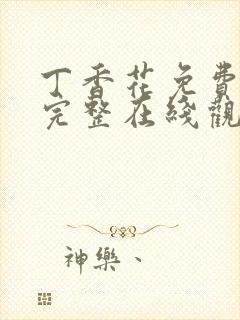 丁香花免費
完整在綫觀
神樂、